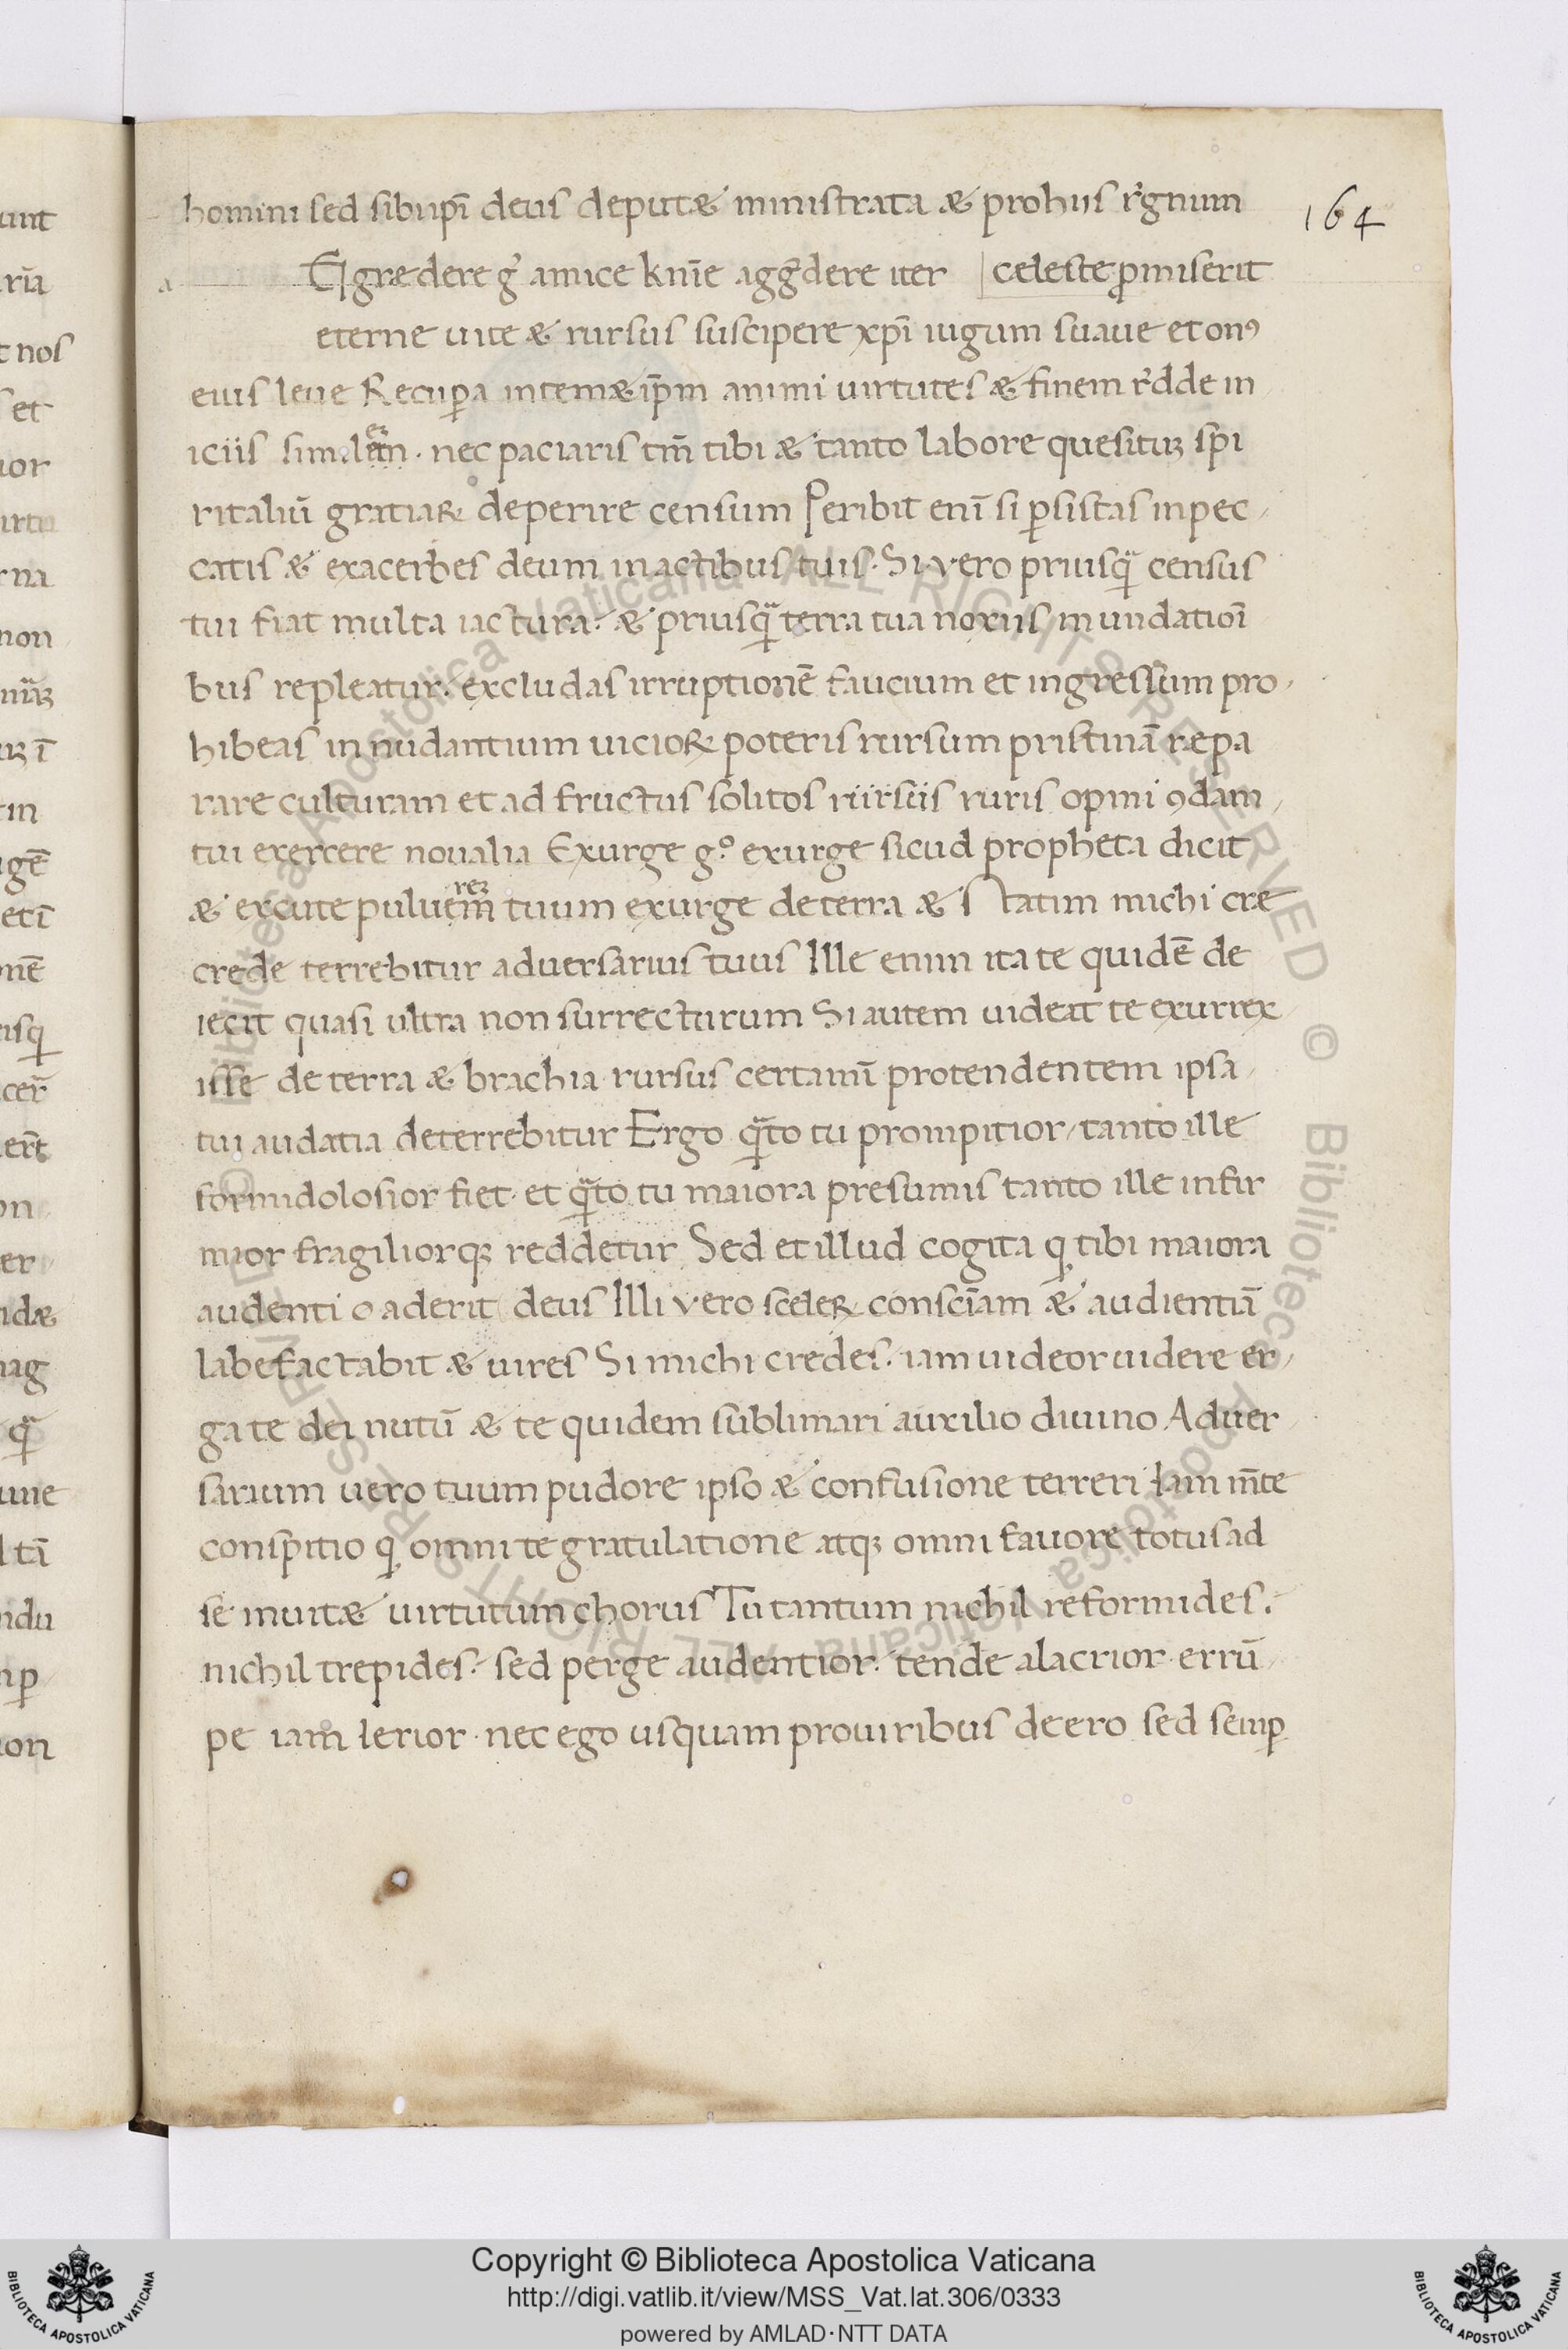 164
homini sed sibi ipī deus deputæ ministrata æ pro hiis r̓gnum
Egredere g̓ amice knīe agg̓dere iter celeste ꝓmiserit
eterne uite æ rursus suscipere xp̄i iugum suaue et onꝰ
eius leue Recuꝑa intemæip̄m animi uirtutes æ finem r̓dde in
iciis similem · nec paciaris tm̄ tibi æ tanto labore quesituꝫ spi
ritaliū gratiaꝝ deperire censum Peribit enī si ꝑsistas in pec
catis æ exacerbes deum in actibus tuis · Si vero priusqᷓ census
tui fiat multa iactura · æ priusqᷓ terra tua noxiis inundatioī
bus repleatur · excludas irruptionē faucium et ingressum pro
hibeas innudantium uicioꝝ poteris rursum pristinā repa
rare culturam et ad fructus solitos rursus ruris opimi ꝯdam
tui exercere noualia Exurge g.º exurge sicud propheta dicit
æ excute puluerem tuum exurge de terra æ statim michi cre
crede terrebitur aduersarius tuus Ille enim ita te quidē de
iecit quasi ultra non surrecturum Si autem uideat te exurrex
isse de terra æ brachia rursus certamī protendentem ipsa
tui audatia deterrebitur Ergo qᷓto tu prompitior tanto ille
formidolosior fiet · et qᷓto tu maiora presumis tanto ille infir
mior fragiliorqꝫ reddetur Sed et illud cogita q tibi maiora
audenti oaderit deus Illi vero sceleꝝ consciam̄ æ audientiā
labefactabit æ uires Si michi credes · iam uideor uidere er
ga te dei nutū æ te quidem sublimari auxilio diuino Aduer
sarium vero tuum pudore ipso æ confusione terreri Iam m̄te
conspitio q omni te gratulatione atqꝫ omni fauore totus ad
se inuitæ uirtutum chorus Tu tantum nichil reformides ·
nichil trepides · sed perge audentior · tende alacrior · errū
pe iam lerior · nec ego usquam pro uiribus deero sed semꝑ
Copyright © Biblioteca Apostolica Vaticana
http://digi.vatlib.it/view/MSS_Vat.lat.306/0333
powered by AMLAD·NTT DATA
BIBLIOTECA APOSTOLICA VATICANA
BIBLIOTECA APOSTOLICA VATICANA